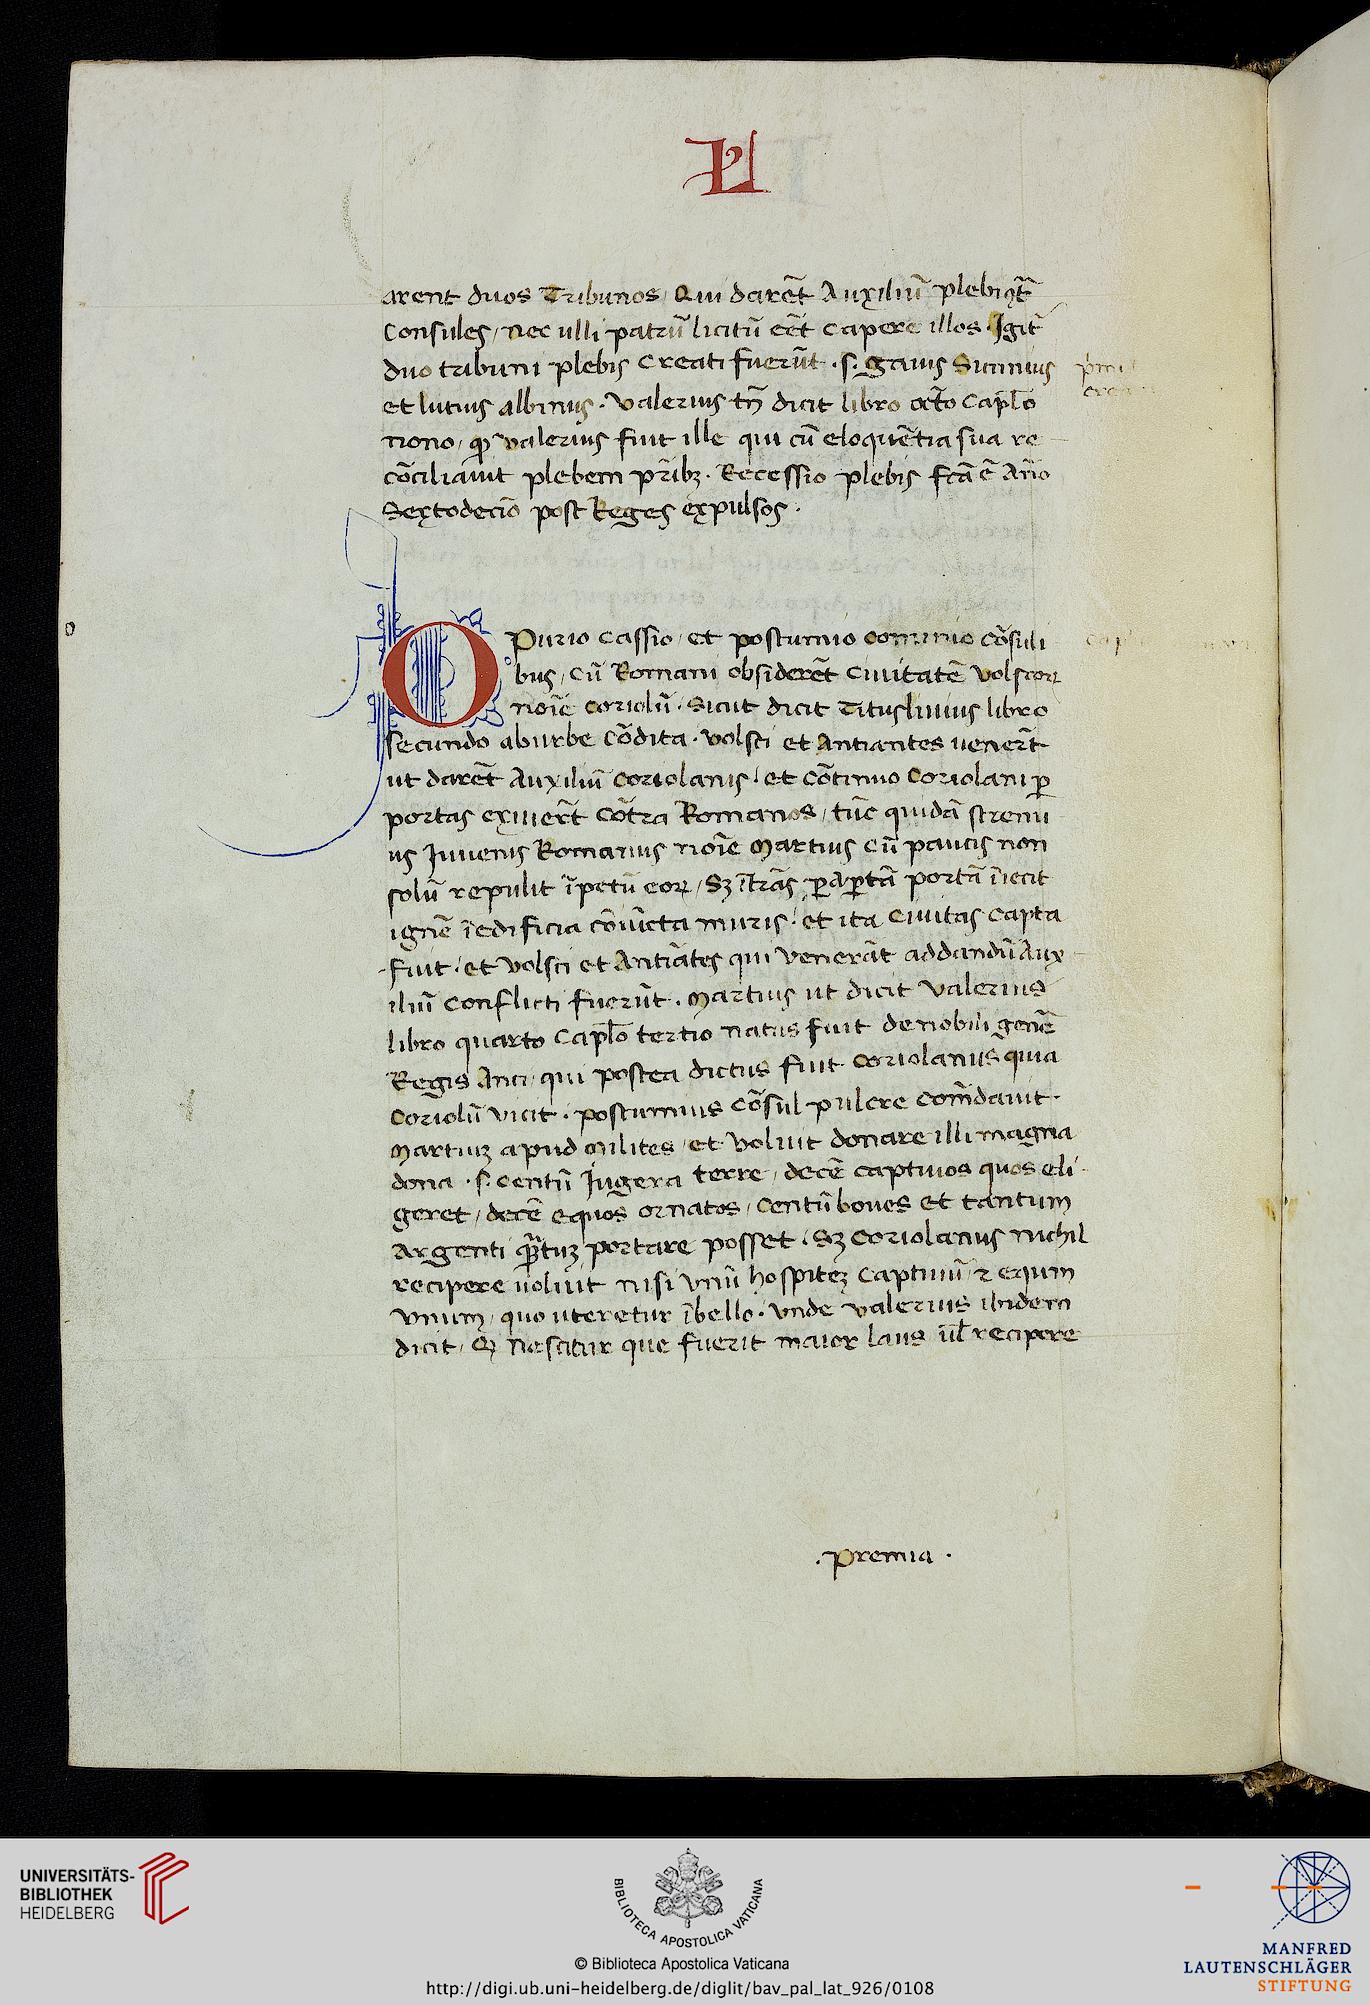 LI
arent duos Tribunos, Qui darēt Auxiliū plebi ɔt̄
Consules, nec ulli patrū licitū eēt capere illos. Igit̄
duo tribuni plebis Creati fuerūt .s. gaius Sicinius
et lutius albinus. Valerius tn̄ dicit libro octo Capl̄o
nono, qd̄ valerius fuit ille qui cū eloquētia sua re
cōciliauit plebem pr̄ibꝫ. Recessio plebis fcā ē Año
Sextodecīo post Reges expulsos.
OPurio Cassio, et postumio cominio cōsuli
bus, Cū Romani obsiderēt Ciuitatē Volscoꝝ
noīe Coriolū. Sicut dicit Tituslinius libro
secundo aburbe Cōdita. Volsci et Antiantes uenert̄
ut darēt Auxiliū Coriolanis, et cōtinuo Coriolani ꝑ
portas exiuert̄ Cōtra Romanos, tūc quidā strenu
us Iuuenis Romanus noīe Martius Cū paucis non
solū repulit īpetū eoꝝ, Sꝫ ītrās ꝑ aꝑtā portā īiecit
ignē ī edificia cōiūcta muris. et ita Ciuitas Capta
fuit. et Volsci et Antiātes qui venerāt addandū Aux
iliū Conflicti fuerūt. Martius ut dicit Valerius
libro quarto Capl̄o tertio natus fuit de nobili genē
Regis Anci, qui postea dictus fuit Coriolanus quia
Coriolū vicit. postumius Cōsul pulcre Comēdauit.
Martiuꝫ apud Milites, et Voluit donare illi magna
dona .s. Centū Iugera terre, decē captiuos quos eli
geret, decē equos ornatos, Centū boues et tantum
Argenti qr̄ātuꝫ portare posset. Sꝫ Coriolanus nichil
recipere uoluit nisi Vnū hospiteꝫ Captiuū, ⁊ equm
Vnum, quo uteretur ībello. Vnde Valerius ibidem
dicit, Qꝫ Nescitur que fuerit maior laus ūl recipere
.premia.
UNIVERSITÄTS-
BIBLIOTHEK
HEIDELBERG
BIBLIOTECA APOSTOLICA VATICANA
© Biblioteca Apostolica Vaticana
http://digi.ub.uni-heidelberg.de/diglit/bav_pal_lat_926/0108
MANFRED
LAUTENSCHLÄGER
STIFTUNG